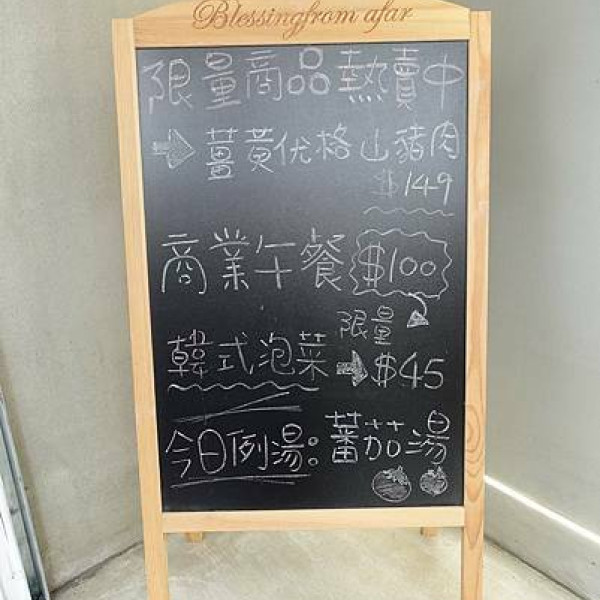 Blessingfrom afar
限量商品熱賣中
→薑黃优格山豬肉
$149
商業午餐 $100
限量
韓式泡菜→$45
今日例湯:蕃茄湯